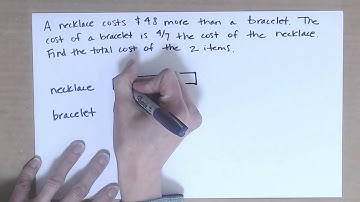 A necklace costs $48 more than a bracelet. The
cost of a bracelet is 4/7 the cost of the necklace.
Find the total cost of the 2 items.
necklace
bracelet